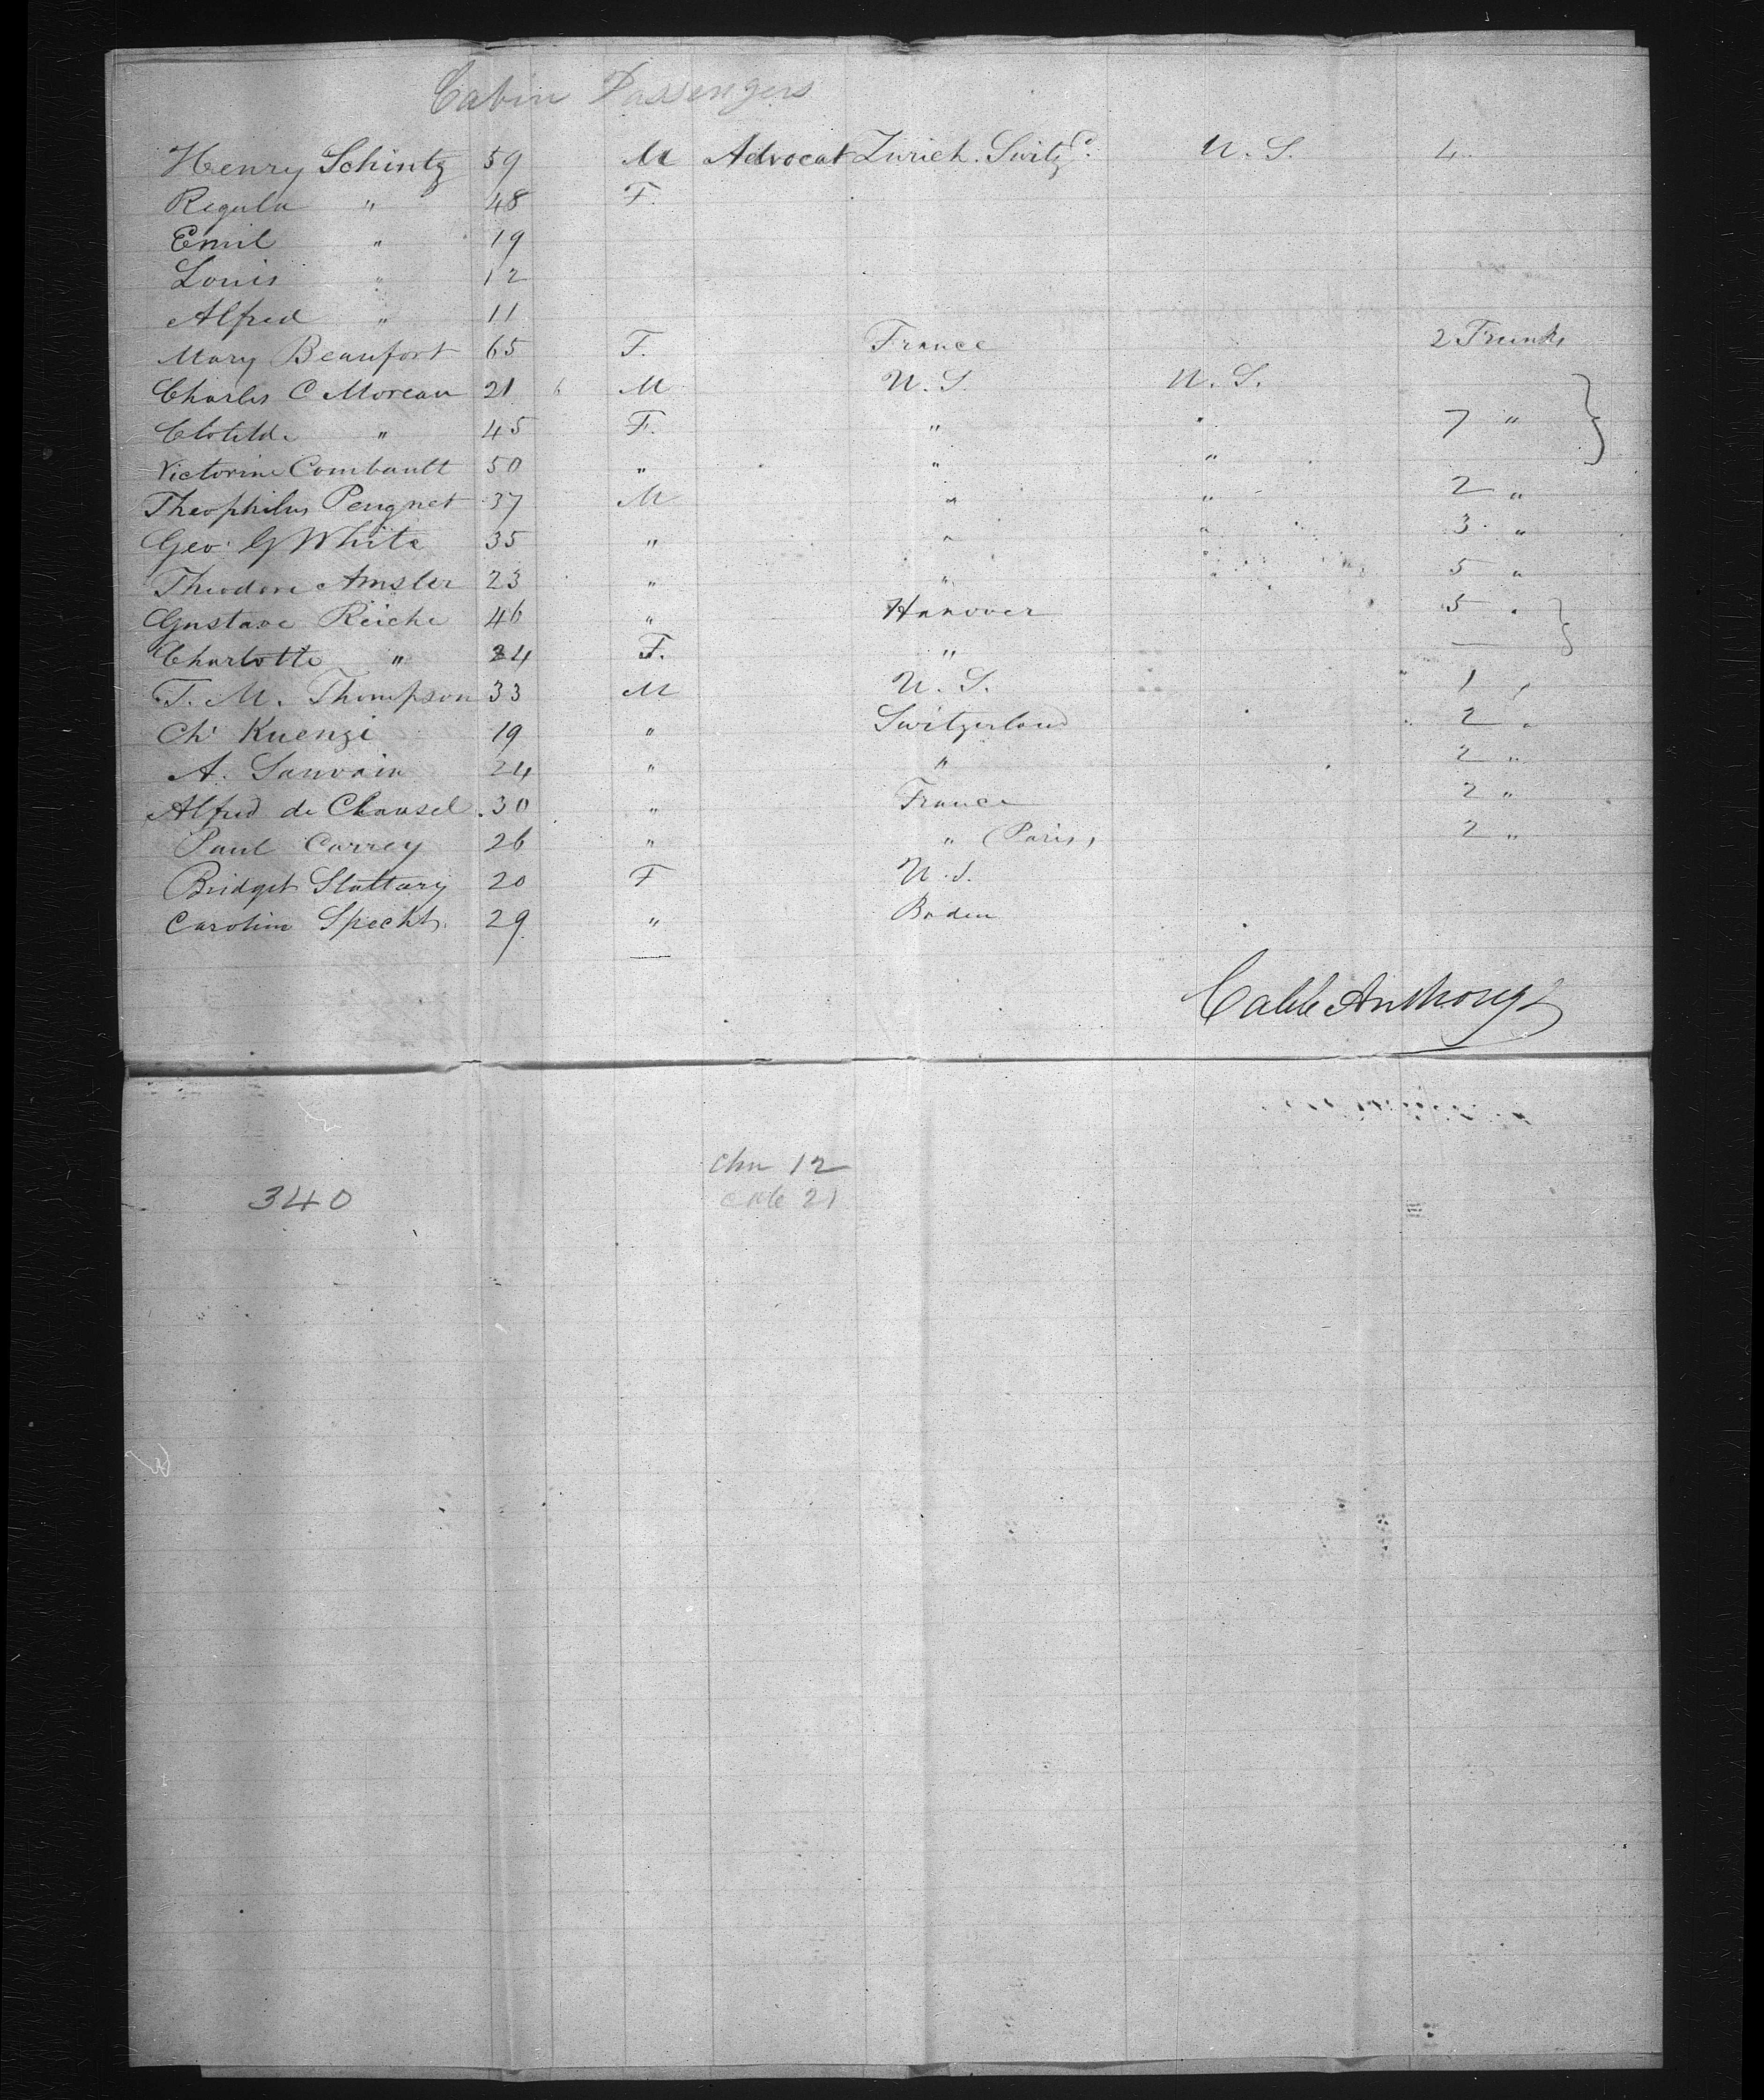 Cabin Passengers
Henry Schintz 59 M Advocat Zurich. Switzd. U. S. 4
Regula " 48 F.
Emil " 19
Louis " 12
Alfred " 11
Mary Beaufort 65 F. France 2 Trunks
Charles C Moreau 21 M U. S. U. S.
Clotilde " 45 F. " " 7 "
Victorine Combault 50 " " "
Theophilus Peugnet 37 M " " 2 "
Geo. G White 35 " " " 3 "
Theodore Amsler 23 " " " 5 "
Gustave Reiche 46 " Hanover 5 "
Charlotte " 24 F. " —
T. M. Thompson 33 M U. S. 1 "
Ch. Kuenzi 19 " Switzerland 2 "
A. Sauvain 24 " " 2 "
Alfred de Chousel 30 " France 2 "
Paul Carrey 26 " " (Paris) 2 "
Bridget Slattary 20 F U. S.
Carolin Specht 29 " Baden
Caleb Anthony
chn 12
340 21